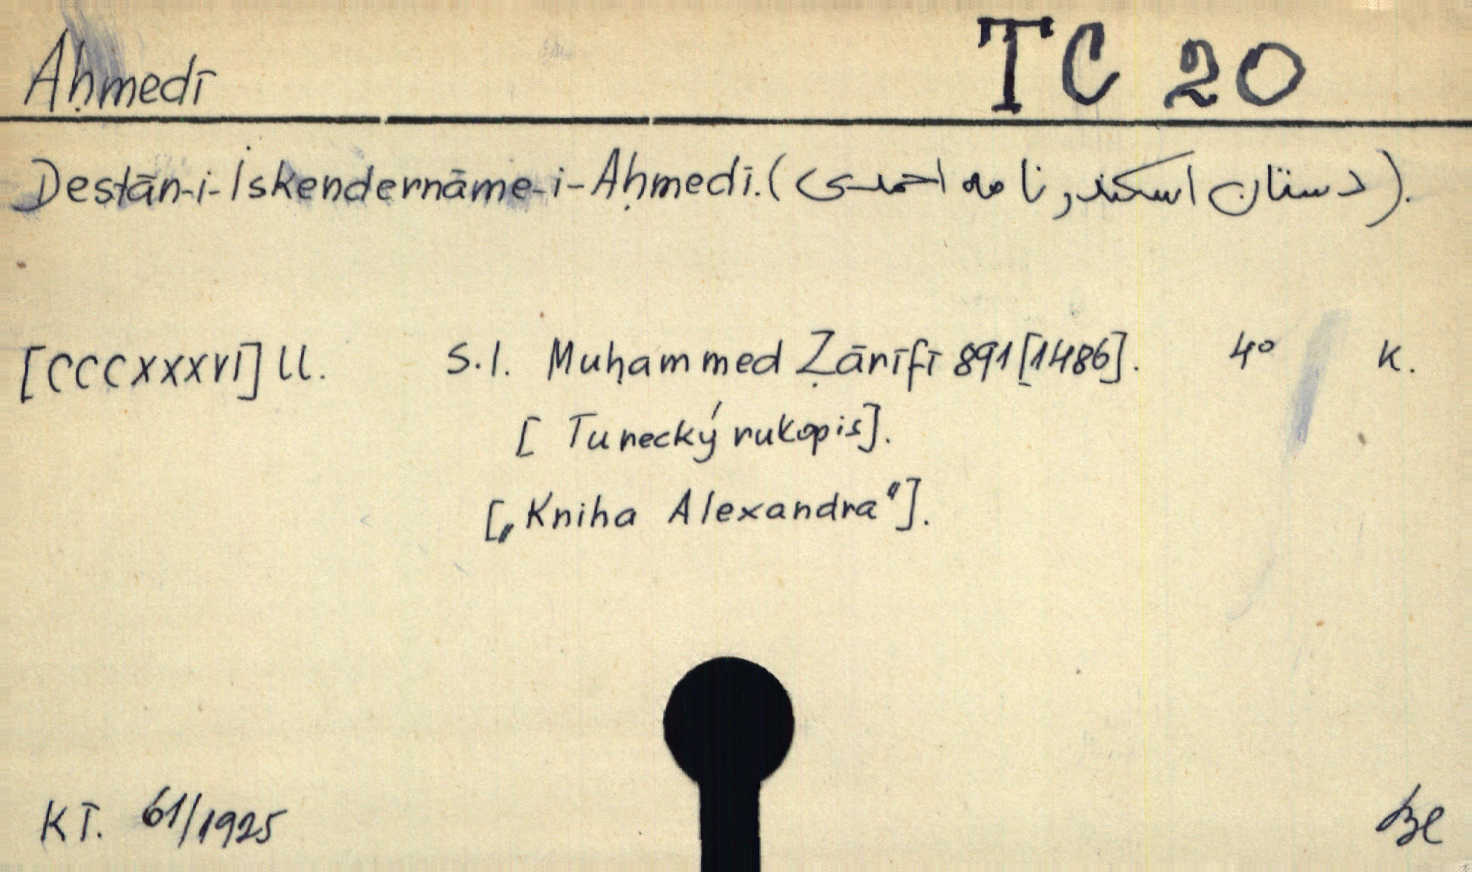 Aḥmedī TC 20
Destān-i-İskendernāme-i-Aḥmedī. (دستان اسكندر نامه احمدى).
[CCCXXXVI] ll. S.l. Muḥammed Ẓārīfī 891 [1486]. 4° K.
[Turecký rukopis].
[„Kniha Alexandra"].
KT. 61/1925